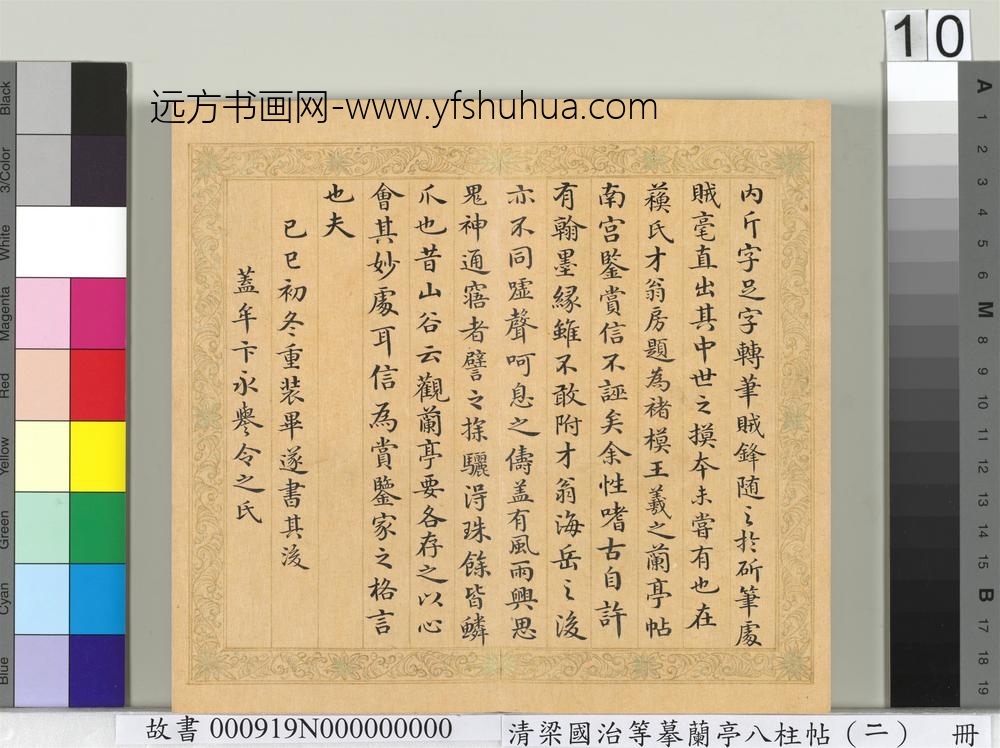 10
远方书画网-www.yfshuhua.com
内斤字足字轉筆賊鋒随之於斫筆處
賊毫直出其中世之摸本未嘗有也在
蘓氏才翁房題為褚模王羲之蘭亭帖
南宫鑒賞信不誣矣余性嗜古自許
有翰墨縁雖不敢附才翁海岳之後
亦不同噓聲呵息之儔盖有風雨興思
鬼神通寤者譬之探驪淂珠餘皆鱗
爪也昔山谷云觀蘭亭要各存之以心
會其妙處耳信為賞鑒家之格言
也夫
己巳初冬重装畢遂書其後
蓋牟卞永譽令之氏
Black
3/Color
White
Magenta
Red
Yellow
Green
Cyan
Blue
A
1
2
3
4
5
6
M
8
9
10
11
12
13
14
15
B
17
18
19
故書 000919N000000000
清梁國治等摹蘭亭八柱帖(二) 冊